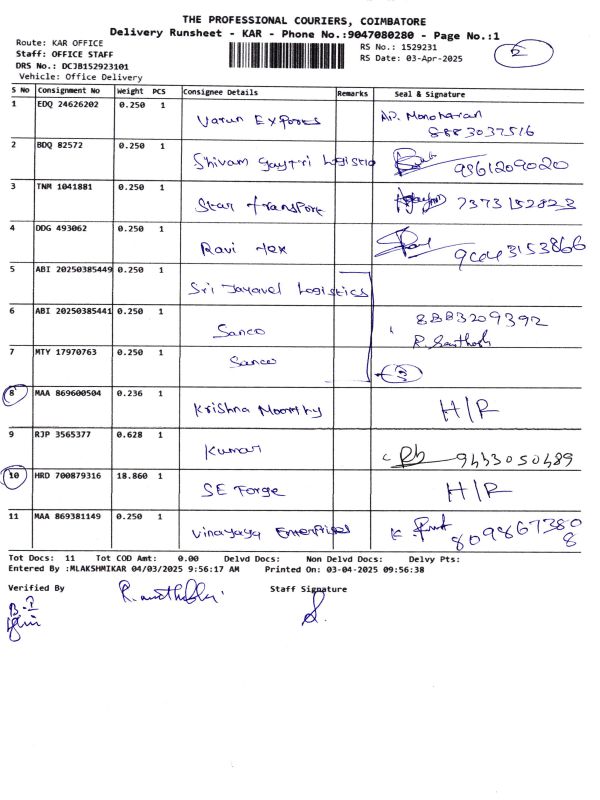 THE PROFESSIONAL COURIERS, COIMBATORE
Delivery Runsheet - KAR - Phone No.:9047080280 - Page No.:1
Route: KAR OFFICE
Staff: OFFICE STAFF
DRS No.: DCJB152923101
Vehicle: Office Delivery
RS No.: 1529231
RS Date: 03-Apr-2025
2
S No Consignment No Weight PCS Consignee Details Remarks Seal & Signature
1 EDQ 24626202 0.250 1 Varun Exports AP. Manoharan
8883037516
2 BDQ 82572 0.250 1 Shivam Gaytri Logistic 9361209020
3 TNM 1041881 0.250 1 Star transport 7373152823
4 DDG 493062 0.250 1 Ravi tex 9043153866
5 ABI 20250385449 0.250 1 Sri Jayavel Logistics
6 ABI 20250385441 0.250 1 Sanco 8883209392
R. Santhosh
7 MTY 17970763 0.250 1 Sanco 3
8 MAA 869600504 0.236 1 Krishna Moorthy H/R
9 RJP 3565377 0.628 1 Kumar 9433050489
10 HRD 700879316 18.860 1 SE Forge H/R
11 MAA 869381149 0.250 1 Vinayaga Enterprises K.
8098673808
Tot Docs: 11 Tot COD Amt: 0.00 Delvd Docs: Non Delvd Docs: Delvy Pts:
Entered By :MLAKSHMIKAR 04/03/2025 9:56:17 AM Printed On: 03-04-2025 09:56:38
Verified By Staff Signature